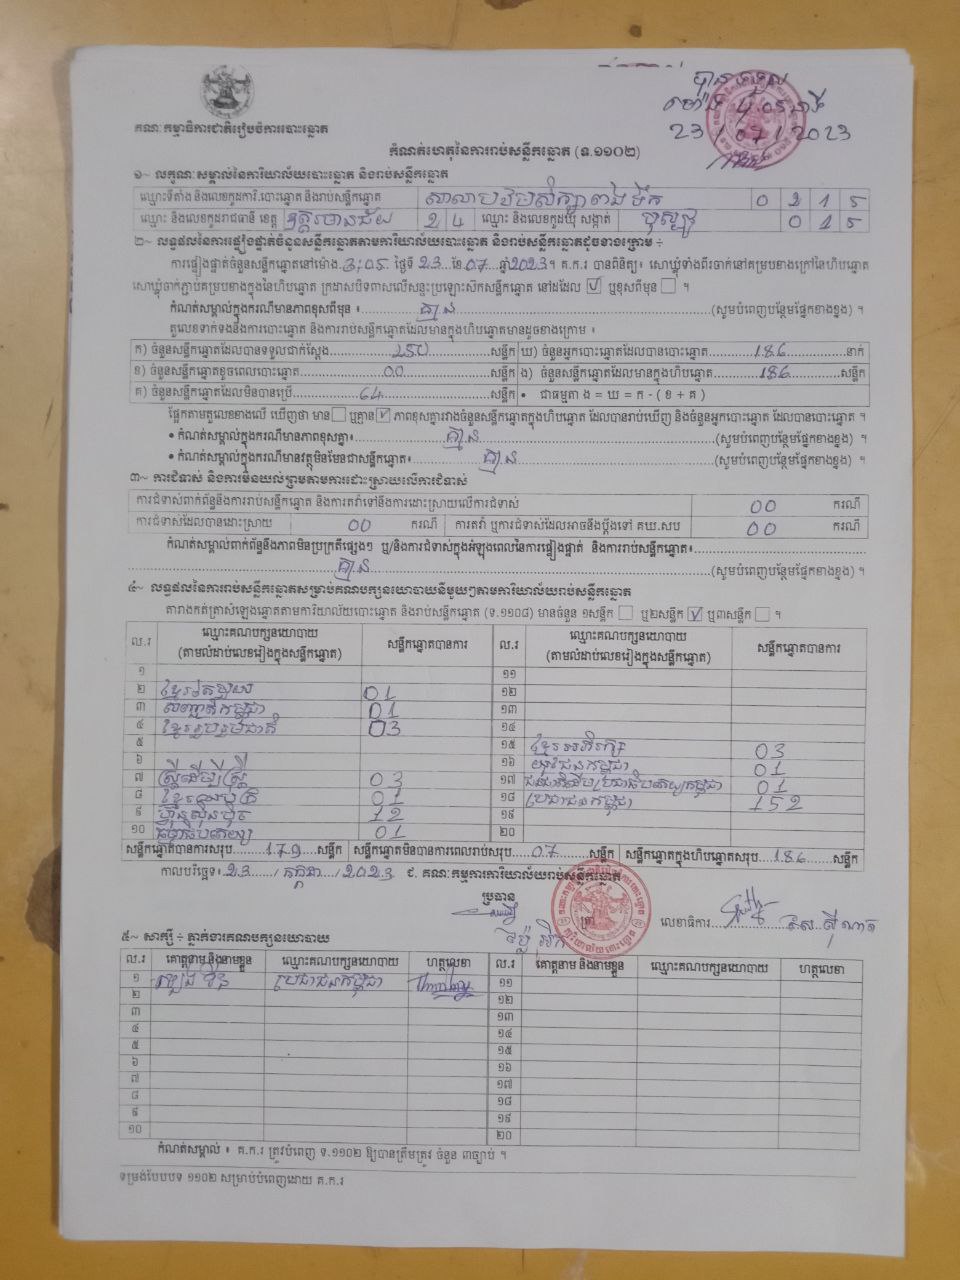 ម៉ោង ៤:០៥ នាទី
23 / 07 / 2023
គណៈកម្មាធិការជាតិរៀបចំការបោះឆ្នោត
កំណត់ហេតុនៃការរាប់សន្លឹកឆ្នោត (ទ.១១០២)
១~ លក្ខណៈសម្គាល់នៃការិយាល័យបោះឆ្នោត និងរាប់សន្លឹកឆ្នោត
ឈ្មោះទីតាំង និងលេខកូដការិ.បោះឆ្នោត និងរាប់សន្លឹកឆ្នោត 0 2 1 5
ឈ្មោះ និងលេខកូដរាជធានី ខេត្ត ឧត្តរមានជ័យ 2 4 ឈ្មោះ និងលេខកូដឃុំ សង្កាត់ 0 1 5
២~ លទ្ធផលនៃការផ្ទៀងផ្ទាត់ចំនួនសន្លឹកឆ្នោតតាមការិយាល័យបោះឆ្នោត និងរាប់សន្លឹកឆ្នោតដូចខាងក្រោម ÷
ការផ្ទៀងផ្ទាត់ចំនួនសន្លឹកឆ្នោតនៅម៉ោង 3:05 ថ្ងៃទី 23 ខែ 07 ឆ្នាំ 2023។ គ.ក.រ បានពិនិត្យ៖ សោឃ្លុំទាំងពីរចាក់នៅគម្របខាងក្រៅនៃហិបឆ្នោត
សោឃ្លុំចាក់ភ្ជាប់គម្របខាងក្នុងនៃហិបឆ្នោត ក្រដាសបិទពាសលើសន្ទះប្រឡោះសឹកសន្លឹកឆ្នោត នៅដដែល ☑ ឬខុសពីមុន ☐ ។
កំណត់សម្គាល់ក្នុងករណីមានភាពខុសពីមុន ៖ គ្មាន (សូមបំពេញបន្ថែមផ្នែកខាងខ្នង) ។
តួលេខទាក់ទងនឹងការបោះឆ្នោត និងការរាប់សន្លឹកឆ្នោតដែលមានក្នុងហិបឆ្នោតមានដូចខាងក្រោម ៖
ក) ចំនួនសន្លឹកឆ្នោតដែលបានទទួលជាក់ស្តែង 250 សន្លឹក ឃ) ចំនួនអ្នកបោះឆ្នោតដែលបានបោះឆ្នោត 186 នាក់
ខ) ចំនួនសន្លឹកឆ្នោតខូចពេលបោះឆ្នោត 00 សន្លឹក ង) ចំនួនសន្លឹកឆ្នោតដែលមានក្នុងហិបឆ្នោត 186 សន្លឹក
គ) ចំនួនសន្លឹកឆ្នោតដែលមិនបានប្រើ 64 សន្លឹក • ជាធម្មតា ង = ឃ = ក - ( ខ + គ )
ផ្អែកតាមតួលេខខាងលើ ឃើញថា មាន ☐ ឬគ្មាន ☑ ភាពខុសគ្នារវាងចំនួនសន្លឹកឆ្នោតក្នុងហិបឆ្នោត ដែលបានរាប់ឃើញ និងចំនួនអ្នកបោះឆ្នោត ដែលបានបោះឆ្នោត ។
• កំណត់សម្គាល់ក្នុងករណីមានភាពខុសគ្នា៖ គ្មាន (សូមបំពេញបន្ថែមផ្នែកខាងខ្នង) ។
• កំណត់សម្គាល់ក្នុងករណីមានវត្ថុមិនមែនជាសន្លឹកឆ្នោត៖ គ្មាន (សូមបំពេញបន្ថែមផ្នែកខាងខ្នង) ។
៣~ ការជំទាស់ និងការមិនយល់ព្រមតាមការដោះស្រាយលើការជំទាស់
ការជំទាស់ពាក់ព័ន្ធនឹងការរាប់សន្លឹកឆ្នោត និងការតវ៉ាទៅនឹងការដោះស្រាយលើការជំទាស់ 00 ករណី
ការជំទាស់ដែលបានដោះស្រាយ 00 ករណី ការតវ៉ា ឬការជំទាស់ដែលអាចនឹងប្តឹងទៅ គឃ.សប 00 ករណី
កំណត់សម្គាល់ពាក់ព័ន្ធនឹងភាពមិនប្រក្រតីផ្សេងៗ ឬ/និងការជំទាស់ក្នុងអំឡុងពេលនៃការផ្ទៀងផ្ទាត់ និងការរាប់សន្លឹកឆ្នោត៖
គ្មាន (សូមបំពេញបន្ថែមផ្នែកខាងខ្នង) ។
៤~ លទ្ធផលនៃការរាប់សន្លឹកឆ្នោតសម្រាប់គណបក្សនយោបាយនីមួយៗតាមការិយាល័យរាប់សន្លឹកឆ្នោត
តារាងកត់ត្រាសំឡេងឆ្នោតតាមការិយាល័យបោះឆ្នោត និងរាប់សន្លឹកឆ្នោត (ទ.១១០៨) មានចំនួន ១សន្លឹក ☐ ឬ២សន្លឹក ☑ ឬ៣សន្លឹក ☐ ។
ល.រ ឈ្មោះគណបក្សនយោបាយ (តាមលំដាប់លេខរៀងក្នុងសន្លឹកឆ្នោត) សន្លឹកឆ្នោតបានការ ល.រ ឈ្មោះគណបក្សនយោបាយ (តាមលំដាប់លេខរៀងក្នុងសន្លឹកឆ្នោត) សន្លឹកឆ្នោតបានការ
១ ១១
២ 01 ១២
៣ 01 ១៣
៤ ខ្មែររួបរួមជាតិ 03 ១៤
៥ ១៥ ខ្មែរអភិរក្ស 03
៦ ១៦ យុវជនកម្ពុជា 01
៧ ស្ត្រីដើម្បីស្ត្រី 03 ១៧ ជនជាតិដើមប្រជាធិបតេយ្យកម្ពុជា 01
៨ 01 ១៨ ប្រជាជនកម្ពុជា 152
៩ ហ្វ៊ុនស៊ិនប៉ិច 12 ១៩
១០ ធម្មាធិបតេយ្យ 01 ២០
សន្លឹកឆ្នោតបានការសរុប 179 សន្លឹក សន្លឹកឆ្នោតមិនបានការពេលរាប់សរុប 07 សន្លឹក សន្លឹកឆ្នោតក្នុងហិបឆ្នោតសរុប 186 សន្លឹក
កាលបរិច្ឆេទ៖ 23 / កក្កដា / 2023 ៩. គណៈកម្មការការិយាល័យរាប់សន្លឹកឆ្នោត
ប្រធាន
លេខាធិការ
៥~ សាក្សី ÷ ភ្នាក់ងារគណបក្សនយោបាយ
ល.រ គោត្តនាម និងនាមខ្លួន ឈ្មោះគណបក្សនយោបាយ ហត្ថលេខា ល.រ គោត្តនាម និងនាមខ្លួន ឈ្មោះគណបក្សនយោបាយ ហត្ថលេខា
១ ប្រជាជនកម្ពុជា ១១
២ ១២
៣ ១៣
៤ ១៤
៥ ១៥
៦ ១៦
៧ ១៧
៨ ១៨
៩ ១៩
១០ ២០
កំណត់សម្គាល់ ៖ គ.ក.រ ត្រូវបំពេញ ទ.១១០២ ឱ្យបានត្រឹមត្រូវ ចំនួន ៣ច្បាប់ ។
ទម្រង់បែបបទ ១១០២ សម្រាប់បំពេញដោយ គ.ក.រ